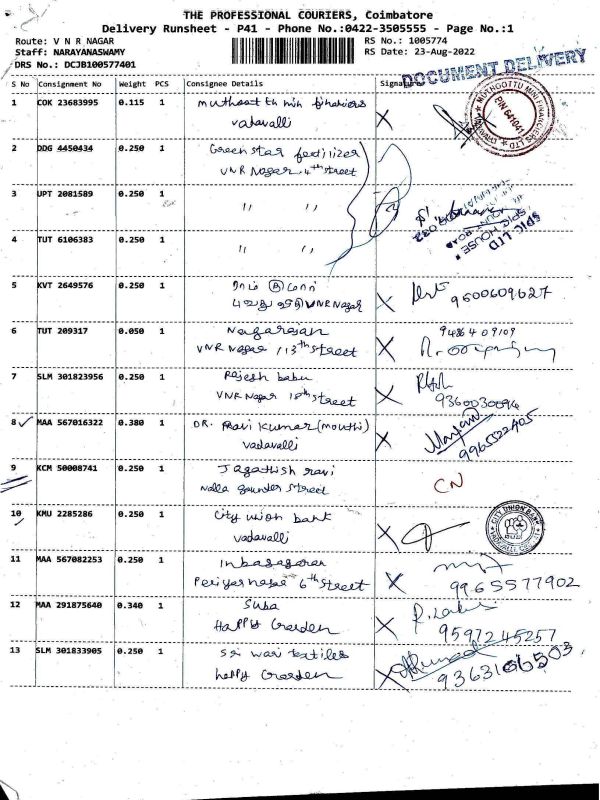 THE PROFESSIONAL COURIERS, Coimbatore
Delivery Runsheet - P41 - Phone No.:0422-3505555 - Page No.:1
Route: V N R NAGAR RS No.: 1005774
Staff: NARAYANASWAMY RS Date: 23-Aug-2022
DRS No.: DCJB100577401
DOCUMENT DELIVERY
S No Consignment No Weight PCS Consignee Details Signature
1 COK 23683995 0.115 1 muthoot th min financiers
vadavalli X
MUTHOOTTU MINI FINANCIERS LTD
PIN 641041
2 DDG 4450434 0.250 1 Green star fertilizer
VNR Nagar 4th street
3 UPT 2081589 0.250 1 " "
SPIC LTD
SPIC HOUSE
MOUNT ROAD
4 TUT 6106383 0.250 1 " "
5 KVT 2649576 0.250 1 VNR Nagar X 9600609627
6 TUT 209317 0.050 1 Nagarajan 9486409109
VNR Nagar 13th street X
7 SLM 301823956 0.250 1 Rajesh babu
VNR Nagar 18th street X 9360030094
8 MAA 567016322 0.380 1 DR. Ravi Kumar (mouthi)
vadavalli X 9965522405
9 KCM 50008741 0.250 1 Jagathish ravi
nalla gounder street CN
10 KMU 2285286 0.250 1 city union bank
vadavalli X
CITY UNION BANK
11 MAA 567082253 0.250 1 Inbasagaran
Periyar nagar 6th street X 9965577902
12 MAA 291875640 0.340 1 Suba
Happy Garden X 9597245257
13 SLM 301833905 0.250 1 Sri wari textiles
happy Garden X 9363106503